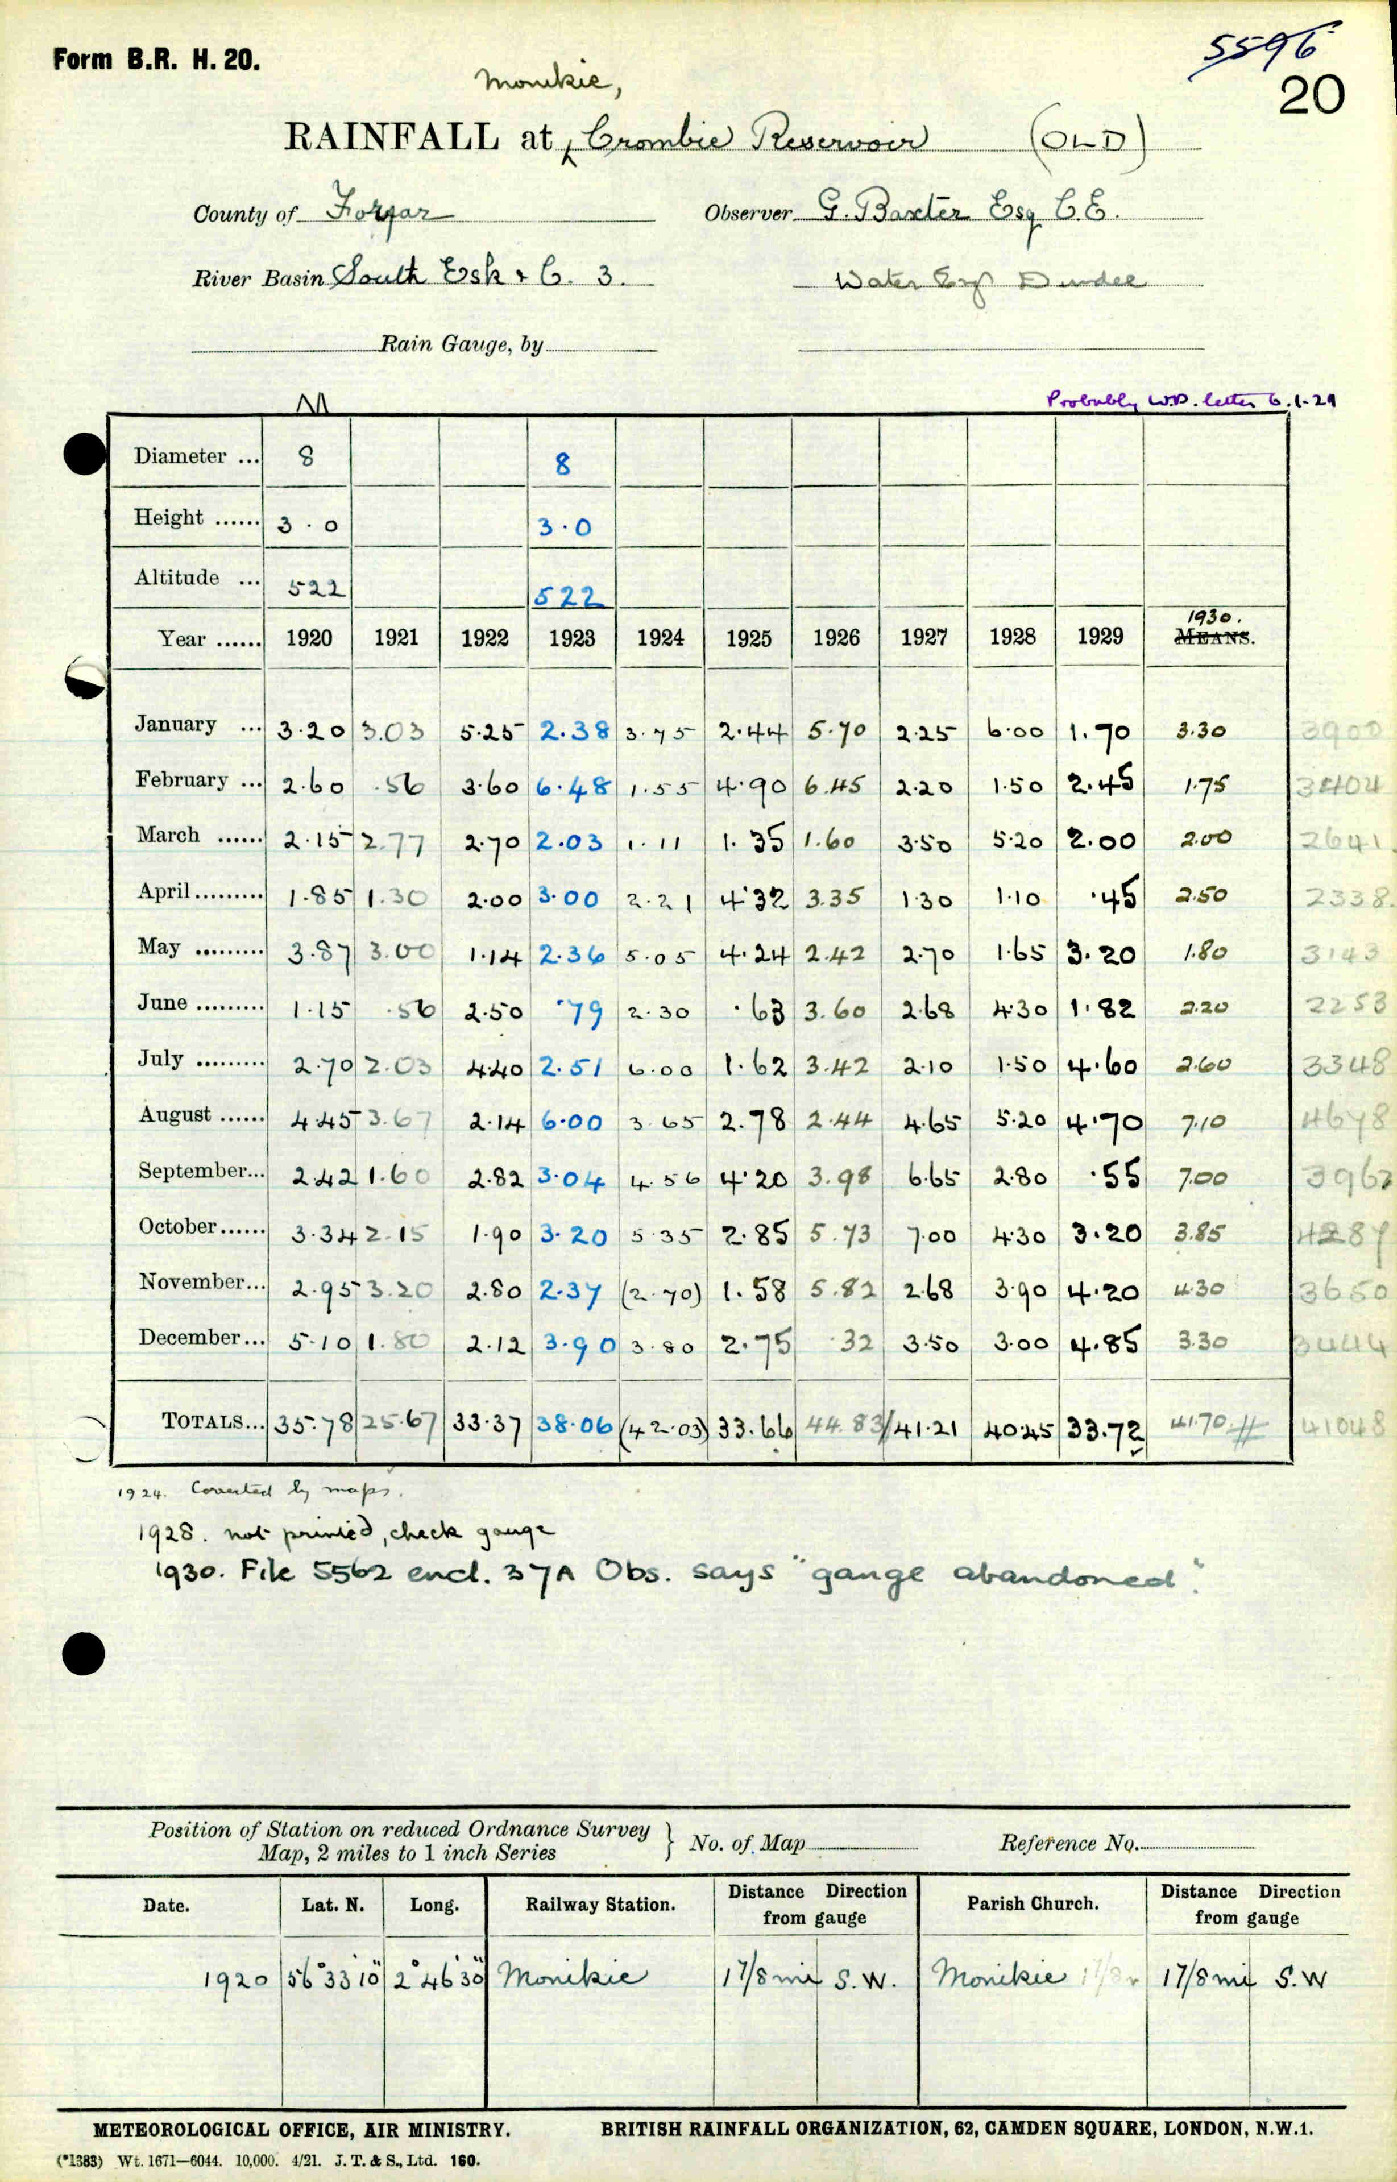 Form B.R. H. 20.
5596
20
Monikie,
RAINFALL at Crombie Reservoir (OLD)
County of Forfar Observer G. Baxter Esq C.E.
River Basin South Esk & C. 3. Water Engr Dundee
Rain Gauge, by
M
Probably W.D. letter 6.1.29
Diameter ... 8 8
Height ...... 3.0 3.0
Altitude ... 522 522
Year ...... 1920 1921 1922 1923 1924 1925 1926 1927 1928 1929 1930. MEANS.
January ... 3.20 3.03 5.25 2.38 3.75 2.44 5.70 2.25 6.00 1.70 3.30 3900
February ... 2.60 .56 3.60 6.48 1.55 4.90 6.45 2.20 1.50 2.45 1.75 3404
March ...... 2.15 2.77 2.70 2.03 1.11 1.35 1.60 3.50 5.20 2.00 2.00 2641
April ......... 1.85 1.30 2.00 3.00 2.21 4.32 3.35 1.30 1.10 .45 2.50 2338
May ......... 3.87 3.00 1.14 2.36 5.05 4.24 2.42 2.70 1.65 3.20 1.80 3143
June ......... 1.15 .56 2.50 .79 2.30 .63 3.60 2.68 4.30 1.82 2.20 2253
July ......... 2.70 2.03 4.40 2.51 6.00 1.62 3.42 2.10 1.50 4.60 2.60 3348
August ...... 4.45 3.67 2.14 6.00 3.65 2.78 2.44 4.65 5.20 4.70 7.10 4678
September... 2.42 1.60 2.82 3.04 4.56 4.20 3.98 6.65 2.80 .55 7.00 3962
October...... 3.34 2.15 1.90 3.20 5.35 2.85 5.73 7.00 4.30 3.20 3.85 4287
November... 2.95 3.20 2.80 2.37 (2.70) 1.58 5.82 2.68 3.90 4.20 4.30 3650
December... 5.10 1.80 2.12 3.90 3.80 2.75 .32 3.50 3.00 4.85 3.30 3444
TOTALS... 35.78 25.67 33.37 38.06 (42.03) 33.66 44.83 41.21 40.45 33.72 41.70 41048
1924. Corrected by maps.
1928. not printed, check gauge
1930. File 5562 encl. 37A Obs. says "gauge abandoned".
Position of Station on reduced Ordnance Survey Map, 2 miles to 1 inch Series } No. of Map Reference No.
Date. Lat. N. Long. Railway Station. Distance Direction from gauge Parish Church. Distance Direction from gauge
1920 56°33'10" 2°46'30" Monikie 1 7/8 mi S.W. Monikie 1 7/8 mi S.W
METEOROLOGICAL OFFICE, AIR MINISTRY. BRITISH RAINFALL ORGANIZATION, 62, CAMDEN SQUARE, LONDON, N.W.1.
(*1383) Wt. 1671—6044. 10,000. 4/21. J. T. & S., Ltd. 160.